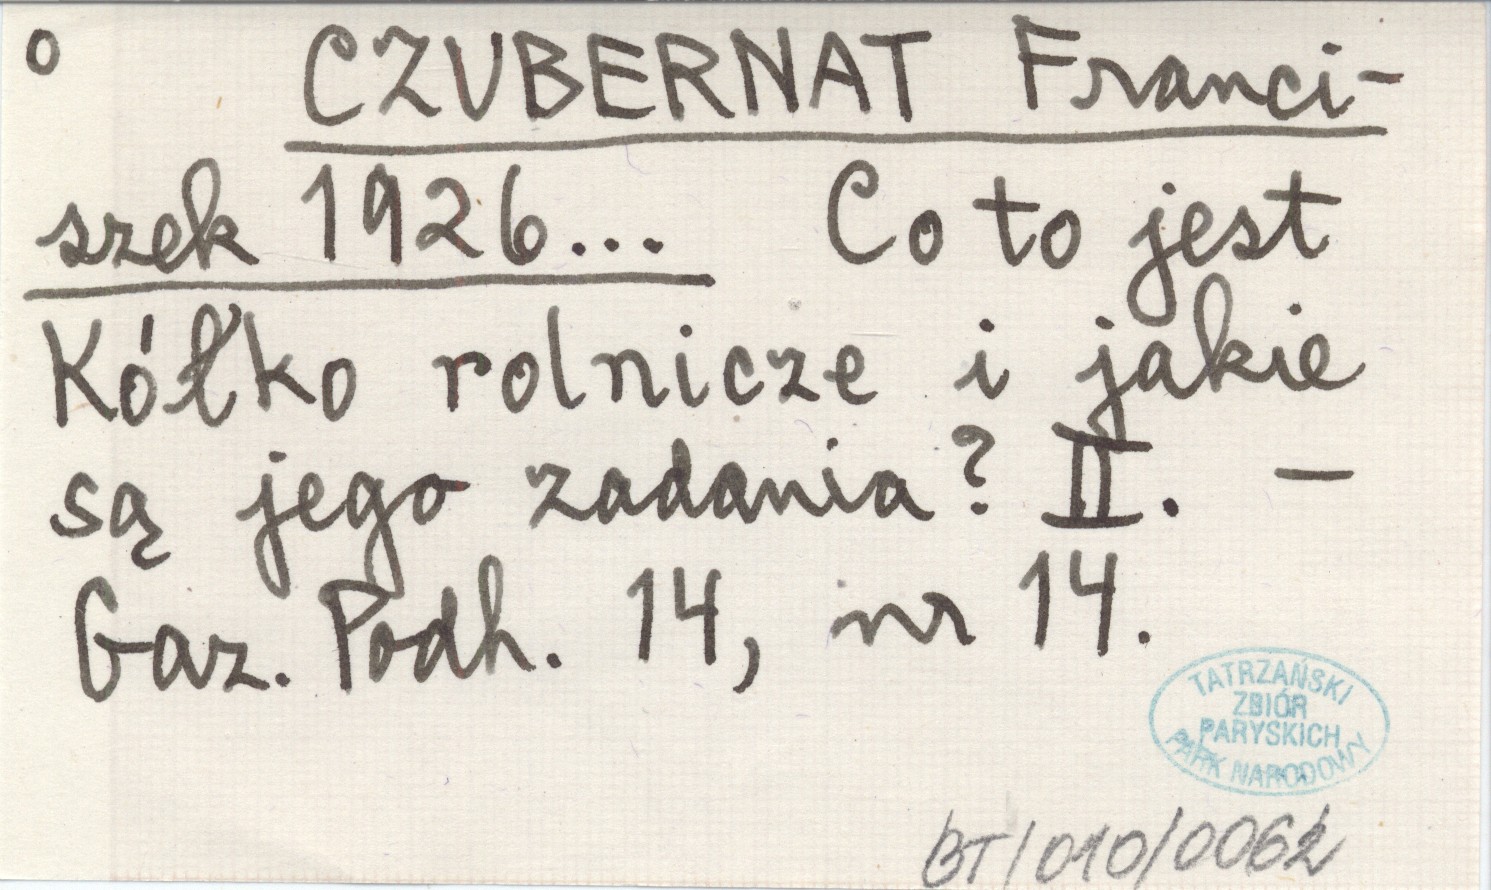 o CZUBERNAT Franci-
szek 1926... Co to jest
Kółko rolnicze i jakie
są jego zadania? II. —
Gaz. Podh. 14, nr 14.
TATRZAŃSKI
ZBIÓR
PARYSKICH
PARK NARODOWY
BT/010/0062